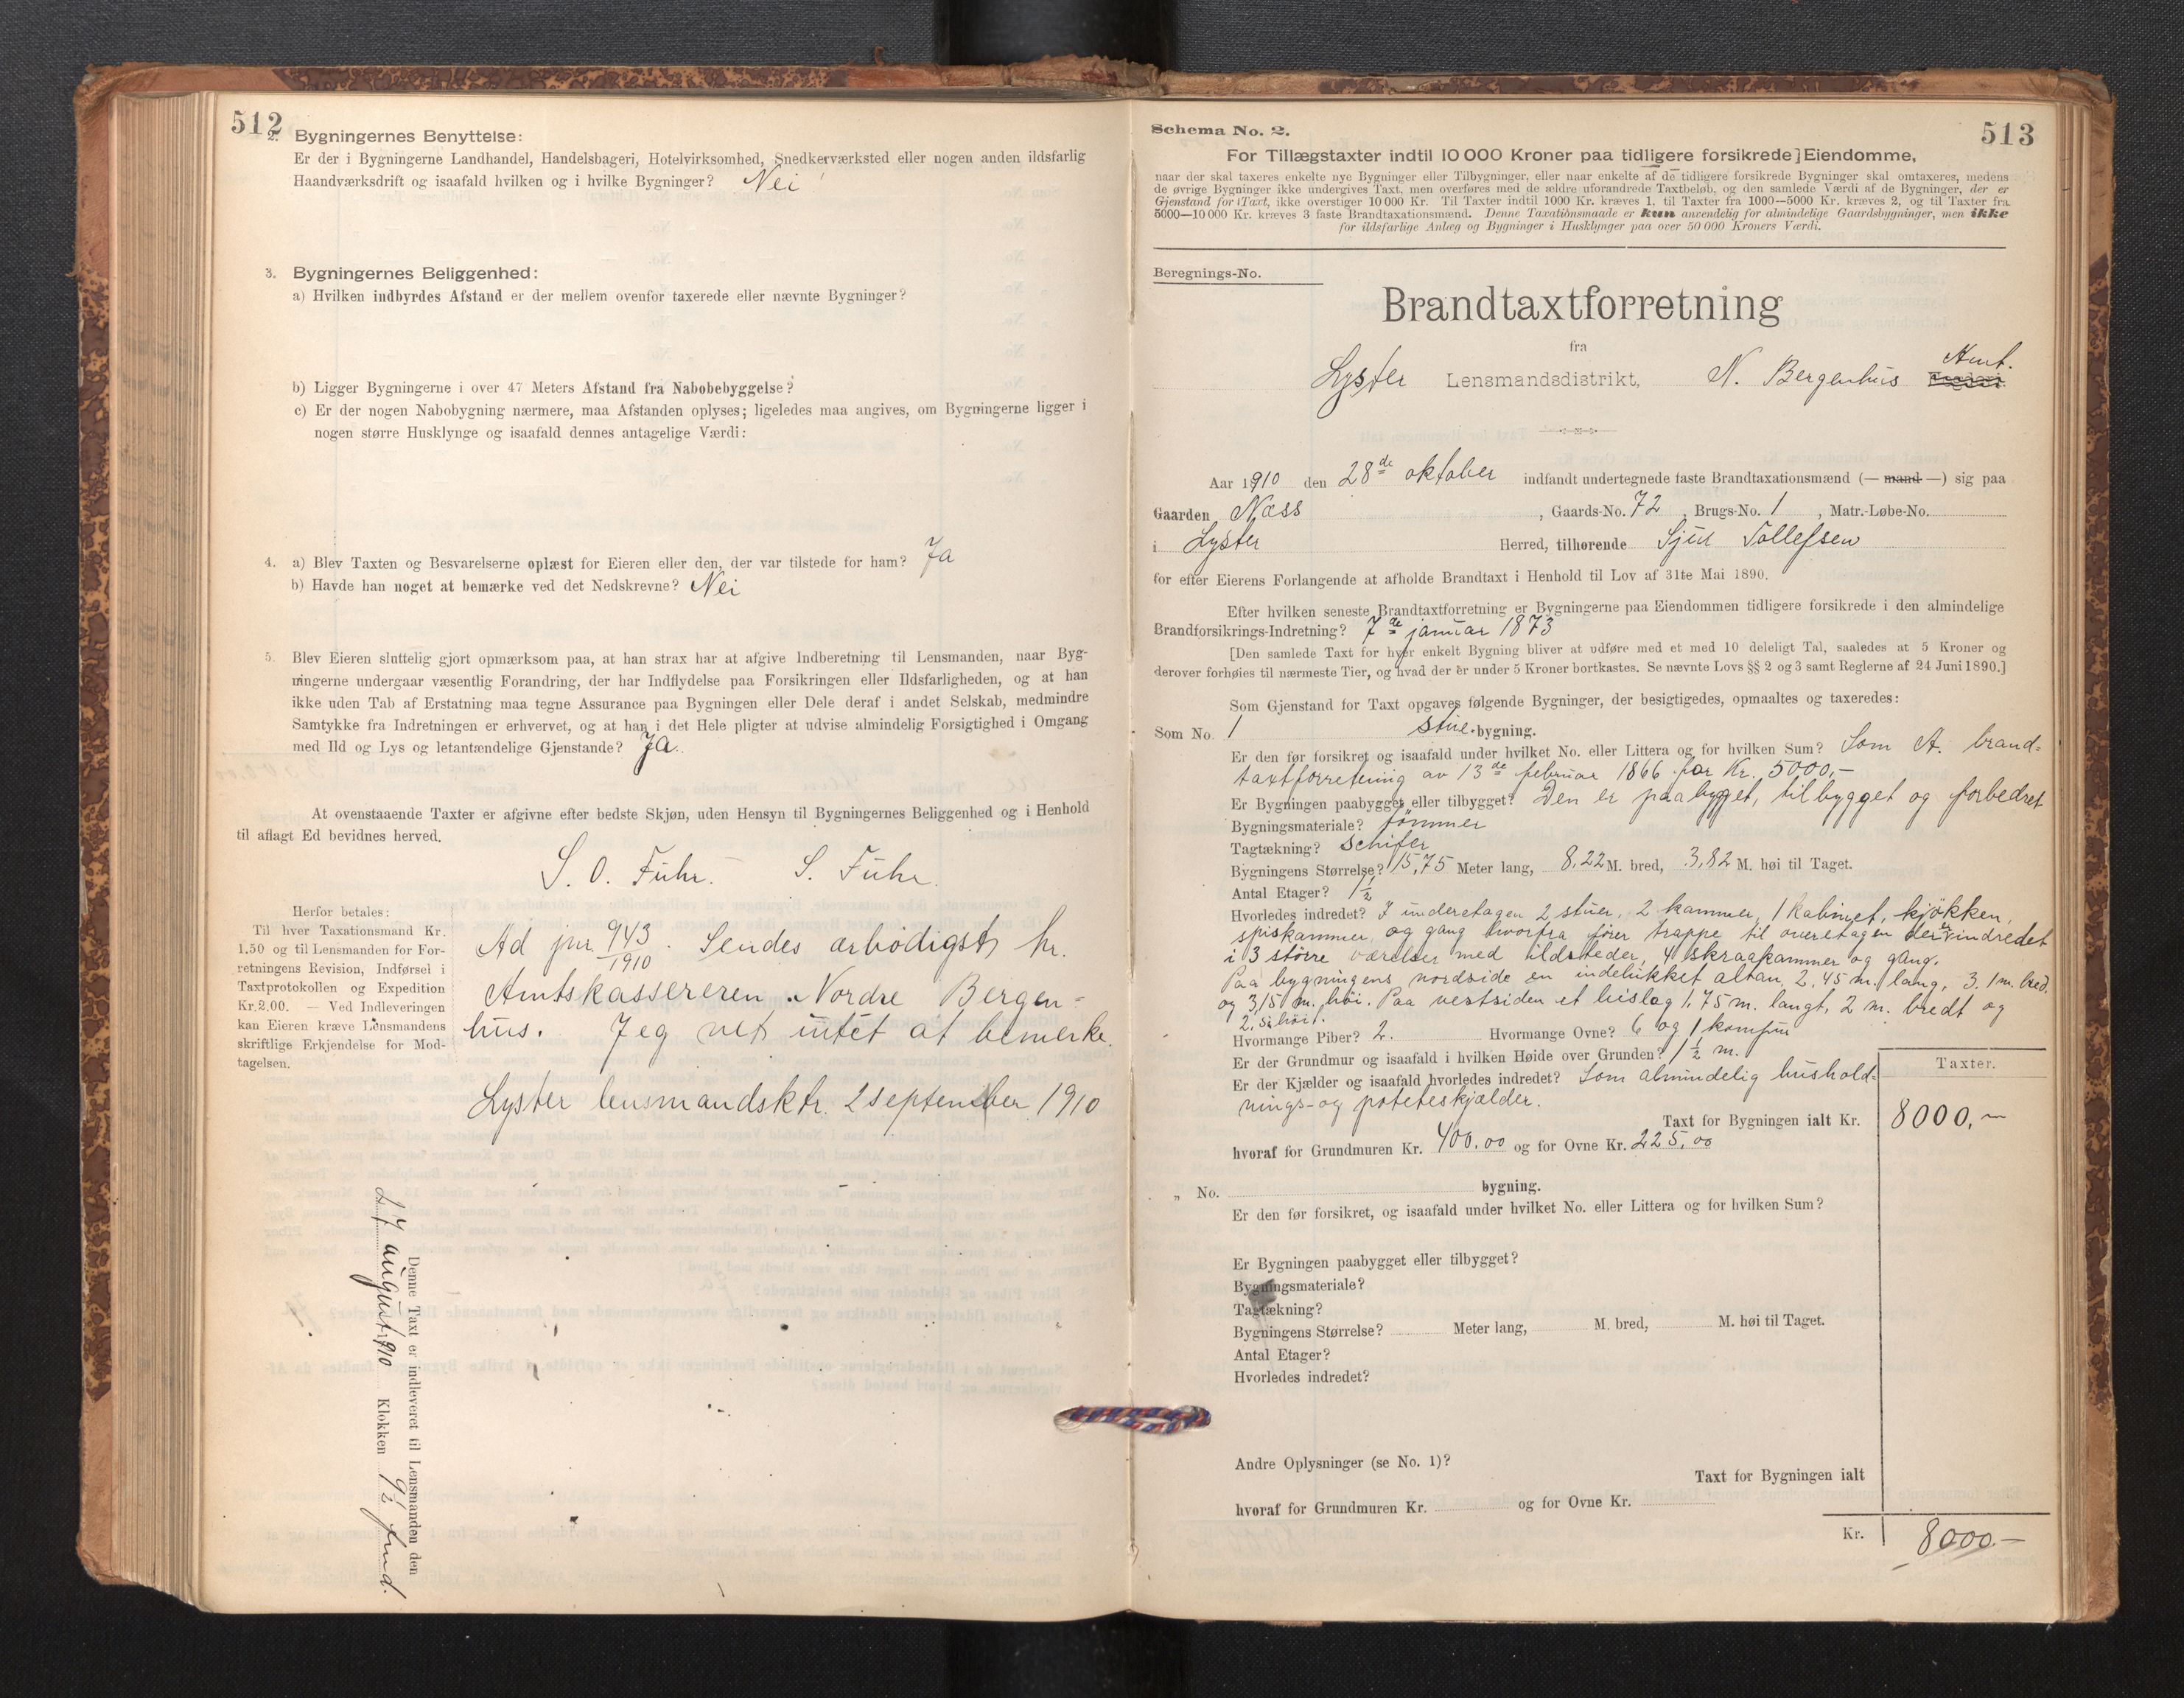 512
2. Bygningernes Benyttelse:
Er der i Bygningerne Landhandel, Handelsbageri, Hotelvirksomhed, Snedkerværksted eller nogen anden ildsfarlig
Haandværksdrift og isaafald hvilken og i hvilke Bygninger? Nei
3. Bygningernes Beliggenhed:
a) Hvilken indbyrdes Afstand er der mellem ovenfor taxerede eller nævnte Bygninger?
b) Ligger Bygningerne i over 47 Meters Afstand fra Nabobebyggelse?
c) Er der nogen Nabobygning nærmere, maa Afstanden oplyses; ligeledes maa angives, om Bygningerne ligger i
nogen større Husklynge og isaafald dennes antagelige Værdi:
4. a) Blev Taxten og Besvarelserne oplæst for Eieren eller den, der var tilstede for ham? Ja
b) Havde han noget at bemærke ved det Nedskrevne? Nei
5. Blev Eieren sluttelig gjort opmærksom paa, at han strax har at afgive Indberetning til Lensmanden, naar Byg-
ningerne undergaar væsentlig Forandring, der har Indflydelse paa Forsikringen eller Ildsfarligheden, og at han
ikke uden Tab af Erstatning maa tegne Assurance paa Bygningen eller Dele deraf i andet Selskab, medmindre
Samtykke fra Indretningen er erhvervet, og at han i det Hele pligter at udvise almindelig Forsigtighed i Omgang
med Ild og Lys og letantændelige Gjenstande? Ja.
At ovenstaaende Taxter er afgivne efter bedste Skjøn, uden Hensyn til Bygningernes Beliggenhed og i Henhold
til aflagt Ed bevidnes herved.
S. O. Fuhr. S. Fuhr.
Herfor betales:
Til hver Taxationsmand Kr.
1.50 og til Lensmanden for For-
retningens Revision, Indførsel i
Taxtprotokollen og Expedition
Kr. 2.00. — Ved Indleveringen
kan Eieren kræve Lensmandens
skriftlige Erkjendelse for Mod-
tagelsen.
Ad jnr. 943/1910. Sendes ærbödigst hr.
Amtskassereren Nordre Bergen-
hus. Jeg vet intet at bemerke.
Lyster lensmandsktr. 2 september 1910
Denne Taxt er indleveret til Lensmanden den
27 august 1910 Klokken 9½ fmd.
513
Schema No. 2.
For Tillægstaxter indtil 10 000 Kroner paa tidligere forsikrede] Eiendomme,
naar der skal taxeres enkelte nye Bygninger eller Tilbygninger, eller naar enkelte af de tidligere forsikrede Bygninger skal omtaxeres, medens
de øvrige Bygninger ikke undergives Taxt, men overføres med de ældre uforandrede Taxtbeløb, og den samlede Værdi af de Bygninger, der er
Gjenstand for Taxt, ikke overstiger 10 000 Kr. Til Taxter indtil 1000 Kr. kræves 1, til Taxter fra 1000—5000 Kr. kræves 2, og til Taxter fra
5000—10 000 Kr. kræves 3 faste Brandtaxationsmænd. Denne Taxationsmaade er kun anvendelig for almindelige Gaardsbygninger, men ikke
for ildsfarlige Anlæg og Bygninger i Husklynger paa over 50 000 Kroners Værdi.
Beregnings-No.
Brandtaxtforretning
fra
Lyster Lensmandsdistrikt, N. Bergenhus Amt. Fogderi.
Aar 1910 den 28de oktober indfandt undertegnede faste Brandtaxationsmænd (— mand —) sig paa
Gaarden Næss, Gaards-No. 72, Brugs-No. 1, Matr.-Løbe-No.
i Lyster Herred, tilhørende Sjul Tollefsen
for efter Eierens Forlangende at afholde Brandtaxt i Henhold til Lov af 31te Mai 1890.
Efter hvilken seneste Brandtaxtforretning er Bygningerne paa Eiendommen tidligere forsikrede i den almindelige
Brandforsikrings-Indretning? 7de januar 1873
[Den samlede Taxt for hver enkelt Bygning bliver at udføre med et med 10 deleligt Tal, saaledes at 5 Kroner og
derover forhøies til nærmeste Tier, og hvad der er under 5 Kroner bortkastes. Se nævnte Lovs §§ 2 og 3 samt Reglerne af 24 Juni 1890.]
Som Gjenstand for Taxt opgaves følgende Bygninger, der besigtigedes, opmaaltes og taxeredes:
Som No. 1 stue-bygning.
Er den før forsikret og isaafald under hvilket No. eller Littera og for hvilken Sum? Som A. brand-
taxtforretning av 13de februar 1866 for Kr. 5000,-
Er Bygningen paabygget eller tilbygget? Den er paabygget, tilbygget og forbedret
Bygningsmateriale? tömmer
Tagtækning? schifer
Bygningens Størrelse? 15,75 Meter lang, 8,22 M. bred, 3,82 M. høi til Taget.
Antal Etager? 1½
Hvorledes indredet? I underetagen 2 stuer, 2 kammer, 1 kabinet, kjøkken,
spiskammer og gang hvorfra fører trappe til overetagen der er indredet
i 3 større værelser med ildsteder, 4 skraakammer og gang.
Paa bygningens nordside en indelukket altan 2,45 m. lang, 3.1 m. bred
og 3,15 m. høi. Paa vestsiden et bislag 1,75 m. langt, 2 m. bredt og
2,5 høit.
Hvormange Piber? 2. Hvormange Ovne? 6 og 1 komfur
Er der Grundmur og isaafald i hvilken Høide over Grunden? 1½ m.
Er der Kjælder og isaafald hvorledes indredet? Som almindelig hushold-
nings- og poteteskjælder.
Taxter.
Taxt for Bygningen ialt Kr. 8000,—
hvoraf for Grundmuren Kr. 400,00 og for Ovne Kr. 225,00
„ No. bygning.
Er den før forsikret, og isaafald under hvilket No. eller Littera og for hvilken Sum?
Er Bygningen paabygget eller tilbygget?
Bygningsmateriale?
Tagtækning?
Bygningens Størrelse? Meter lang, M. bred, M. høi til Taget.
Antal Etager?
Hvorledes indredet?
Andre Oplysninger (se No. 1)?
Taxt for Bygningen ialt
hvoraf for Grundmuren Kr. og for Ovne Kr.
Kr. 8000.—